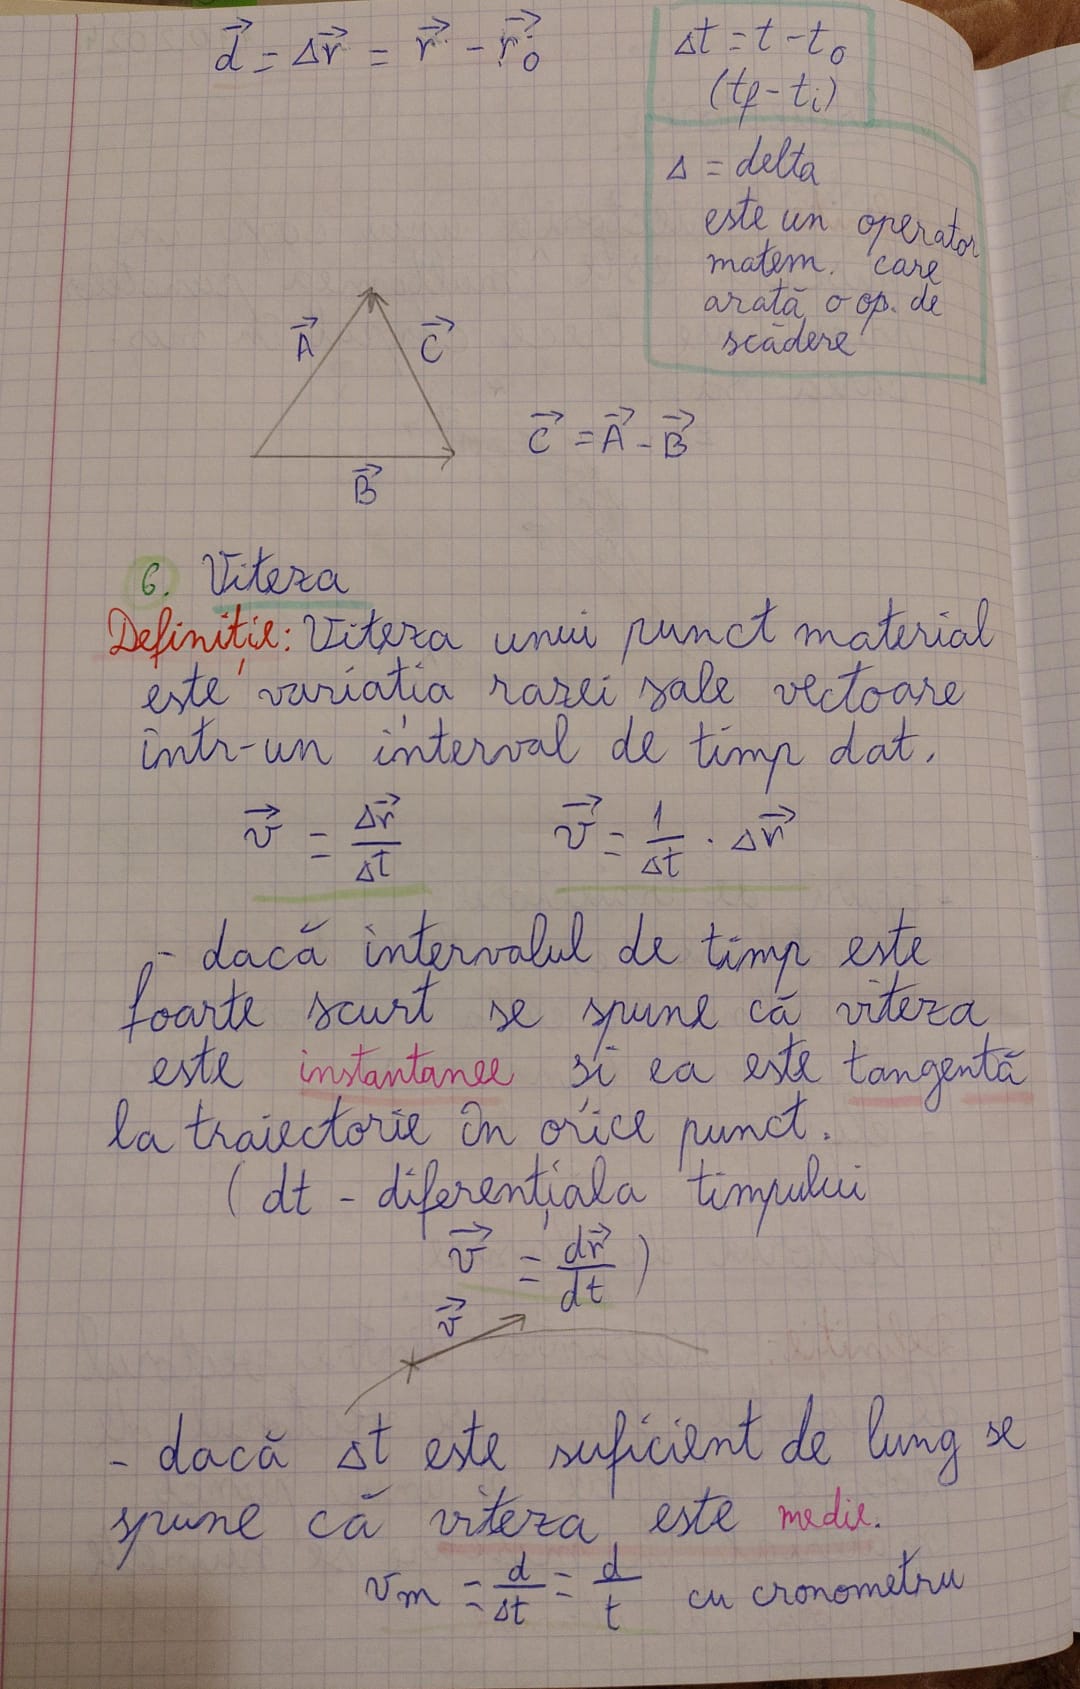 d⃗ = Δr⃗ = r⃗ - r⃗₀
Δt = t - t₀
(tf - ti)
Δ = delta
este un operator
matem. care
arată o op. de
scădere
A⃗
C⃗
B⃗
C⃗ = A⃗ - B⃗
6. Viteza
Definiție: Viteza unui punct material
este variația razei sale vectoare
într-un interval de timp dat.
v⃗ = Δr⃗/Δt v⃗ = 1/Δt · Δr⃗
- dacă intervalul de timp este
foarte scurt se spune că viteza
este instantanee și ea este tangentă
la traiectorie în orice punct.
(dt - diferențiala timpului
v⃗ = dr⃗/dt)
v⃗
- dacă Δt este suficient de lung se
spune că viteza este medie.
vm = d/Δt = d/t cu cronometru